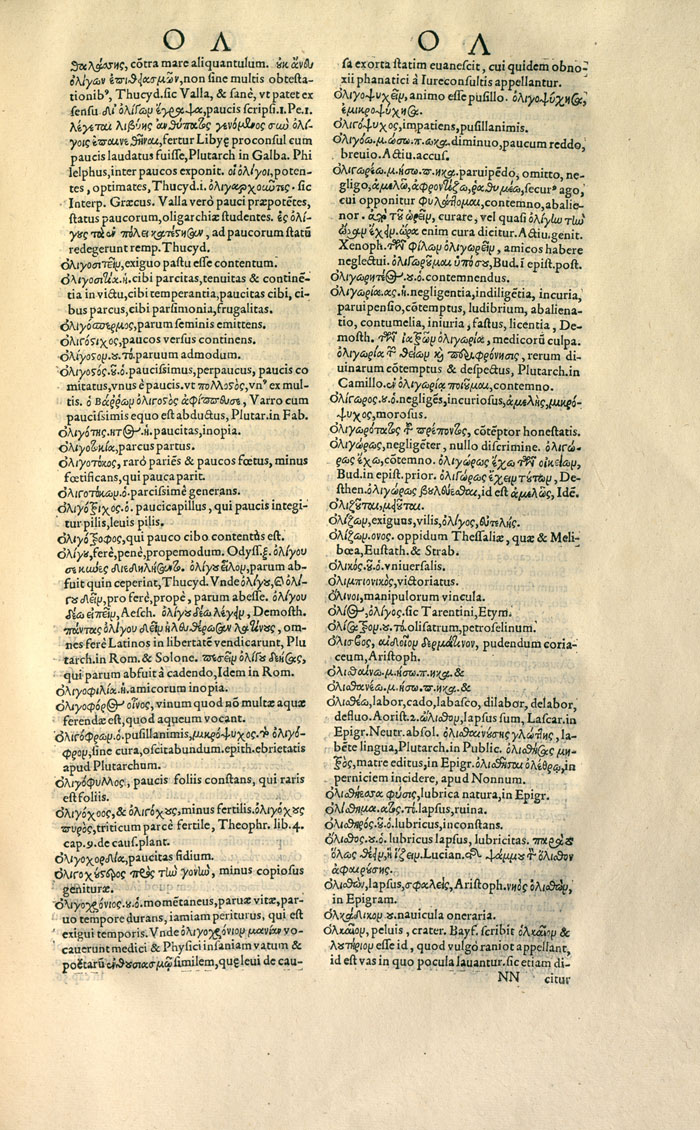 Ο Λ
θαλάσσης, cōtra mare aliquantulum. οὐκ ἄνευ
ὀλίγων ἐπιθειασμῶν, non sine multis obtesta-
tionibꝰ, Thucyd. sic Valla, & sanè, vt patet ex
sensu δι' ὀλίγων ἔγραψα, paucis scripsi. 1. Pe. 1.
λέγεται λιβύης ἀνθύπατος γενόμενος σὺν ὀλί-
γοις ἐπαινεθῆναι, fertur Libyę proconsul cum
paucis laudatus fuisse, Plutarch in Galba. Phi
lelphus, inter paucos exponit. οἱ ὀλίγοι, poten-
tes, optimates, Thucyd. i. ὀλιγαρχοιῶτες. sic
Interp. Græcus. Valla verò pauci præpotētes,
status paucorum, oligarchiæ studentes. ἐς ὀλί-
γους τὰ ἐν πόλει κατέστησαν, ad paucorum statū
redegerunt remp. Thucyd.
Ὀλιγοσιτεῖν, exiguo pastu esse contentum.
Ὀλιγοσιτία. ἡ. cibi parcitas, tenuitas & continē-
tia in victu, cibi temperantia, paucitas cibi, ci-
bus parcus, cibi parsimonia, frugalitas.
Ὀλιγόσπερμος, parum seminis emittens.
Ὀλιγόστιχος, paucos versus continens.
Ὀλίγοστον. ου. τὸ. paruum admodum.
Ὀλιγοστός. οῦ. ὁ. paucissimus, perpaucus, paucis co
mitatus, vnus è paucis. vt πολλοστός, vnꝰ ex mul-
tis. ὁ Βάῤῥων ὀλιγοστὸς ἀφίππευσε, Varro cum
paucissimis equo est abductus, Plutar. in Fab.
Ὀλιγότης. ητος. ἡ. paucitas, inopia.
Ὀλιγοτοκία, parcus partus.
Ὀλιγοτόκος, rarò pariēs & paucos fœtus, minus
fœtificans, qui pauca parit.
Ὀλιγοτόκων. ὁ. parcissimè generans.
Ὀλιγότριχος. ὁ. paucicapillus, qui paucis integi-
tur pilis, leuis pilis.
Ὀλιγότροφος, qui pauco cibo contentus est.
Ὀλίγου, ferè, penè, propemodum. Odyss. ξ. ὀλίγου
σε κύνες διεδηλήσαντο. ὀλίγου εἷλον, parum ab-
fuit quin ceperint, Thucyd. Vnde ὀλίγου, & ὀλί-
γου δεῖν, pro ferè, propè, parum abesse. ὀλίγου
δέω εἰπεῖν, Aesch. ὀλίγου δέω λέγειν, Demosth.
πάντας ὀλίγου δεῖν ἠλευθέρωσαν λατίνους, om-
nes ferè Latinos in libertatē vendicarunt, Plu
tarch. in Rom. & Solone. πεσεῖν ὀλίγου δεήσας,
qui parum abfuit à cadendo, Idem in Rom.
Ὀλιγοφιλία. ἡ. amicorum inopia.
Ὀλιγοφόρος οἶνος, vinum quod nō multæ aquæ
ferendæ est, quod aqueum vocant.
Ὀλιγόφρων. ὁ. pusillanimis, μικρόψυχος. τὸ ὀλιγό-
φρον, sine cura, oscitabundum. epith. ebrietatis
apud Plutarchum.
Ὀλιγόφυλλος, paucis foliis constans, qui raris
est foliis.
Ὀλιγόχοος, & ὀλιγόχους, minus fertilis. ὀλιγόχους
πυρός, triticum parcè fertile, Theophr. lib. 4.
cap. 9. de caus. plant.
Ὀλιγοχορδία, paucitas fidium.
Ὀλιγοχύτερος πρὸς τὴν γονὴν, minus copiosus
genituræ.
Ὀλιγοχρόνιος. ου. ὁ. momētaneus, paruæ vitæ, par-
uo tempore durans, iamiam periturus, qui est
exigui temporis. Vnde ὀλιγοχρόνιον μανίαν vo-
cauerunt medici & Physici insaniam vatum &
poëtarū ἐνθουσιασμῷ similem, quę leui de cau-
Ο Λ
sa exorta statim euanescit, cui quidem obno-
xii phanatici à Iureconsultis appellantur.
Ὀλιγοψυχεῖν, animo esse pusillo. ὀλιγοψύχησε,
ἐμικροψύχησε.
Ὀλιγόψυχος, impatiens, pusillanimis.
Ὀλιγόω. μ. ώσω. π. ωκα. diminuo, paucum reddo,
breuio. Actiu. accus.
Ὀλιγωρέω. μ. ήσω. π. ηκα. paruipēdo, omitto, ne-
gligo, ἀμελῶ, ἀφροντίζω, ῥαθυμέω, securꝰ ago,
cui opponitur φυλάττομαι, contemno, abalie-
nor. ἀπὸ τοῦ ὠρεῖν, curare, vel quasi ὀλίγω τὴν
ὤραν ἔχειν. ὤρα enim cura dicitur. Actiu. genit.
Xenoph. τῶν φίλων ὀλιγωρεῖν, amicos habere
neglectui. ὀλιγωροῦμαι ὑπὸ σου, Bud. ī epist. post.
Ὀλιγωρητέος. ου. ὁ. contemnendus.
Ὀλιγωρία. ας. ἡ. negligentia, indiligētia, incuria,
paruipensio, cōtemptus, ludibrium, abaliena-
tio, contumelia, iniuria, fastus, licentia, De-
mosth. τῶν ἰατρῶν ὀλιγωρία, medicorū culpa.
ὀλιγωρία τῶν θείων καὶ περιφρόνησις, rerum di-
uinarum cōtemptus & despectus, Plutarch. in
Camillo. ἐν ὀλιγωρίᾳ ποιοῦμαι, contemno.
Ὀλίγωρος. ου. ὁ. negligēs, incuriosus, ἀμελὴς, μικρό-
ψυχος, morosus.
Ὀλιγωρότατος τοῦ πρέποντος, cōtēptor honestatis.
Ὀλιγώρως, negligēter, nullo discrimine. ὀλιγώ-
ρως ἔχω, cōtemno. ὀλιγώρως ἔχω τῶν οἰκείων,
Bud. in epist. prior. ὀλιγώρως ἔχειν τούτων, De-
sthen. ὀλιγώρως βουλεύεσθαι, id est ἀμελῶς, Idē.
Ὀλίζουται, μειοῦται.
Ὀλίζων, exiguus, vilis, ὀλίγος, εὐτελής.
Ὀλίζων. ονος. oppidum Thessaliæ, quæ & Meli-
bœa, Eustath. & Strab.
Ὀλικός. οῦ. ὁ. vniuersalis.
Ὀλιμπιονικός, victoriatus.
Ὄλινοι, manipulorum vincula.
Ὀλίος, ὀλίγος. sic Tarentini, Etym.
Ὀλίσατρον. ου. τὸ. olisatrum, petroselinum.
Ὄλισβος, αἰδοῖον δερμάτινον, pudendum coria-
ceum, Aristoph.
Ὀλισθαίνω. μ. ήσω. π. ηκα. &
Ὀλισθανέω. μ. ήσω. π. ηκα. &
Ὀλισθέω, labor, cado, labasco, dilabor, delabor,
defluo. Aorist. 2. ὤλισθον, lapsus sum, Lascar. in
Epigr. Neutr. absol. ὀλισθανούσης γλώττης, la-
bēte lingua, Plutarch. in Public. ὀλισθήσας μη-
τρὸς, matre editus, in Epigr. ὀλισθῆσαι ὀλέθρῳ, in
perniciem incidere, apud Nonnum.
Ὀλισθήεσσα φύσις, lubrica natura, in Epigr.
Ὀλίσθημα. ατος. τὸ. lapsus, ruina.
Ὀλισθηρός. οῦ. ὁ. lubricus, inconstans.
Ὄλισθος. ου. ὁ. lubricus lapsus, lubricitas. παρὰ τοῦ
ὅλως θέειν, ἢ ἵζειν. Lucian. τὸ ψάμμου τὸ ὄλισθον
ἀφαιρούσης.
Ὀλισθών, lapsus, σφαλεὶς, Aristoph. νηὸς ὀλισθών,
in Epigram.
Ὀλκάδικον. ου. nauicula oneraria.
Ὁλκαῖον, peluis, crater. Bayf. scribit ὁλκαῖον &
λυτήριον esse id, quod vulgò raniot appellant,
id est vas in quo pocula lauantur. sic etiam di-
NN citur